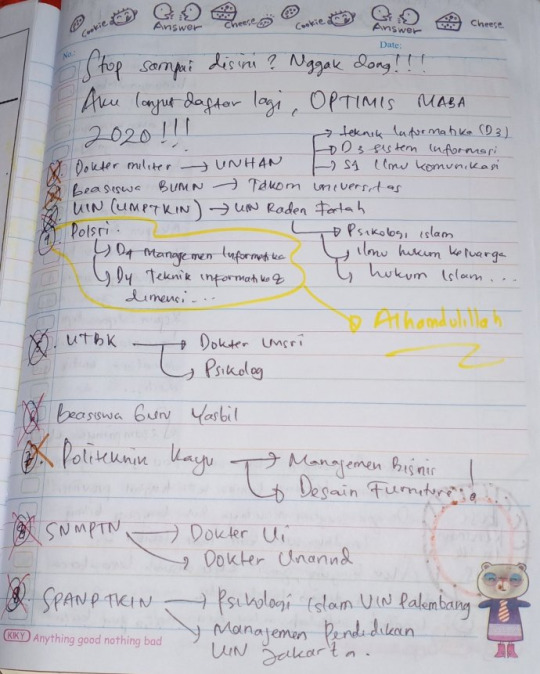 Cookie Answer Cheese Cookie Answer Cheese
No: Date:
Stop sampai disini? Nggak dong!!!
Aku lanjut daftar lagi, OPTIMIS MABA
2020!!!
Teknik Informatika (D3)
Dokter militer → UNHAN D3 Sistem Informasi
Beasiswa BUMN → Telkom Universitas S1 Ilmu Komunikasi
UIN (UMPTKIN) → UIN Raden Fatah
1. Polsri Psikologi Islam
D4 Manajemen Informatika Ilmu hukum keluarga
D4 Teknik informatika 2 hukum Islam...
dimensi...
Alhamdulillah
UTBK → Dokter Unsri
Psikolog
Beasiswa GUN Yasbil
Politeknik Kayu → Manajemen Bisnis
Desain Furniture
8. SNMPTN → Dokter Ui
Dokter Unand
9. SPANPTKIN → Psikologi Islam UIN Palembang
Manajemen Pendidikan
UIN Jakarta.
KIKY Anything good nothing bad